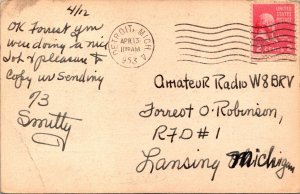 4/12
OK Forrest gm
were doing a nic
Job & pleasure to
Copy ur Sending
73
Smitty
DETROIT, MICH.
APR 13
11 AM
1953
UNITED STATES
POSTAGE
Amateur Radio W8BRV
Forrest O. Robinson,
R7D #1
Lansing Michigan